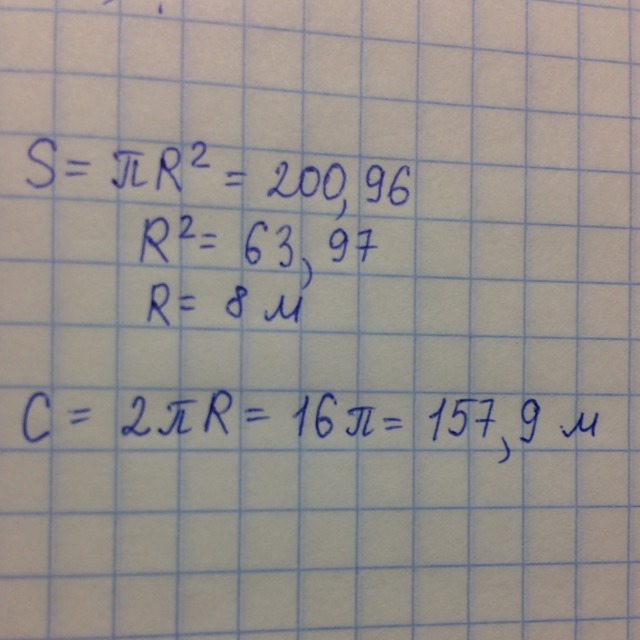 S = πR² = 200,96
R² = 63,97
R = 8 м
C = 2πR = 16π = 157,9 м